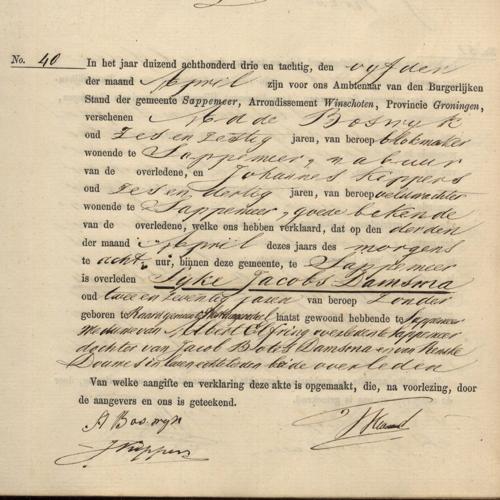 No. 40 In het jaar duizend achthonderd drie en tachtig, den vyfden
der maand April zijn voor ons Ambtenaar van den Burgerlijken
Stand der gemeente Sappemeer, Arrondissement Winschoten, Provincie Groningen,
verschenen Ade Boswyk
oud zes en zestig jaren, van beroep blokmaker
wonende te Sappemeer, nabuur
van de overledene, en Johannes Kippers
oud zes en dertig jaren, van beroep veldwachter
wonende te Sappemeer, goede bekende
van de overledene, welke ons hebben verklaard, dat op den derden
der maand April dezes jaars des morgens
te acht uur, binnen deze gemeente, te Sappemeer
is overleden Sijke Jacobs Damsma
oud twee en zeventig jaren van beroep zonder
geboren te gemeente laatst gewoond hebbende te Sappemeer
weduwe van Albert Elfring overleden te Sappemeer
dochter van Jacob Botes Damsma en van Renske
Douwes in leven echtelieden beide overleden
Van welke aangifte en verklaring deze akte is opgemaakt, die, na voorlezing, door
de aangevers en ons is geteekend.
A Boswyk
J Kippers